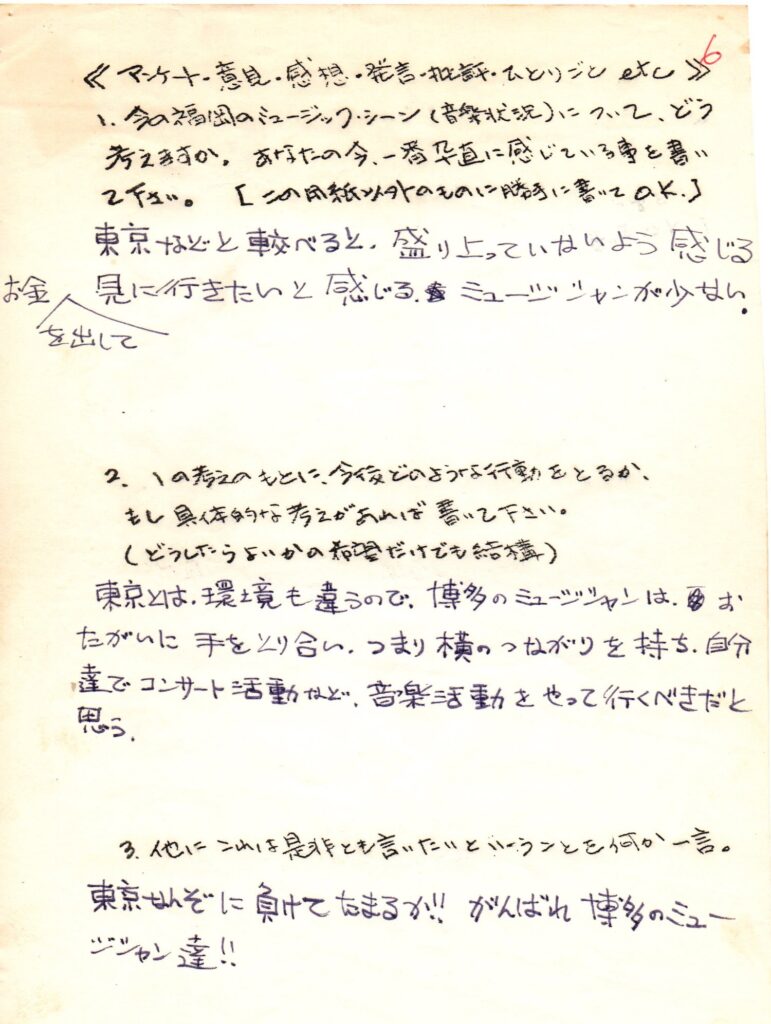 6
《 アンケート・意見・感想・発言・批評・ひとりごと etc 》
1. 今の福岡のミュージック・シーン(音楽状況)について、どう
考えますか。あなたの今、一番卒直に感じている事を書い
て下さい。 [この用紙以外のものに勝手に書いてO.K.]
東京などと較べると、盛り上っていないよう感じる
お金を出して
見に行きたいと感じる、ミュージシャンが少ない。
2. 1の考えのもとに、今後どのような行動をとるか、
もし具体的な考えがあれば書いて下さい。
(どうしたらよいかの希望だけでも結構)
東京とは、環境も違うので、博多のミュージシャンは、お
たがいに手をとり合い、つまり横のつながりを持ち、自分
達でコンサート活動など、音楽活動をやって行くべきだと
思う。
3. 他にこれは是非とも言いたいということを何か一言。
東京なんぞに負けてたまるか!! がんばれ博多のミュー
ジシャン達!!